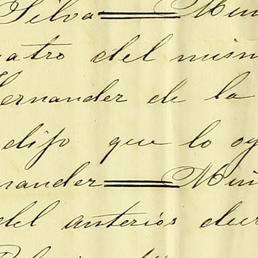 Silva == Mun
atro del mism
Hernander de la
dijo que lo oy
nander == Muñ
del anterior dur